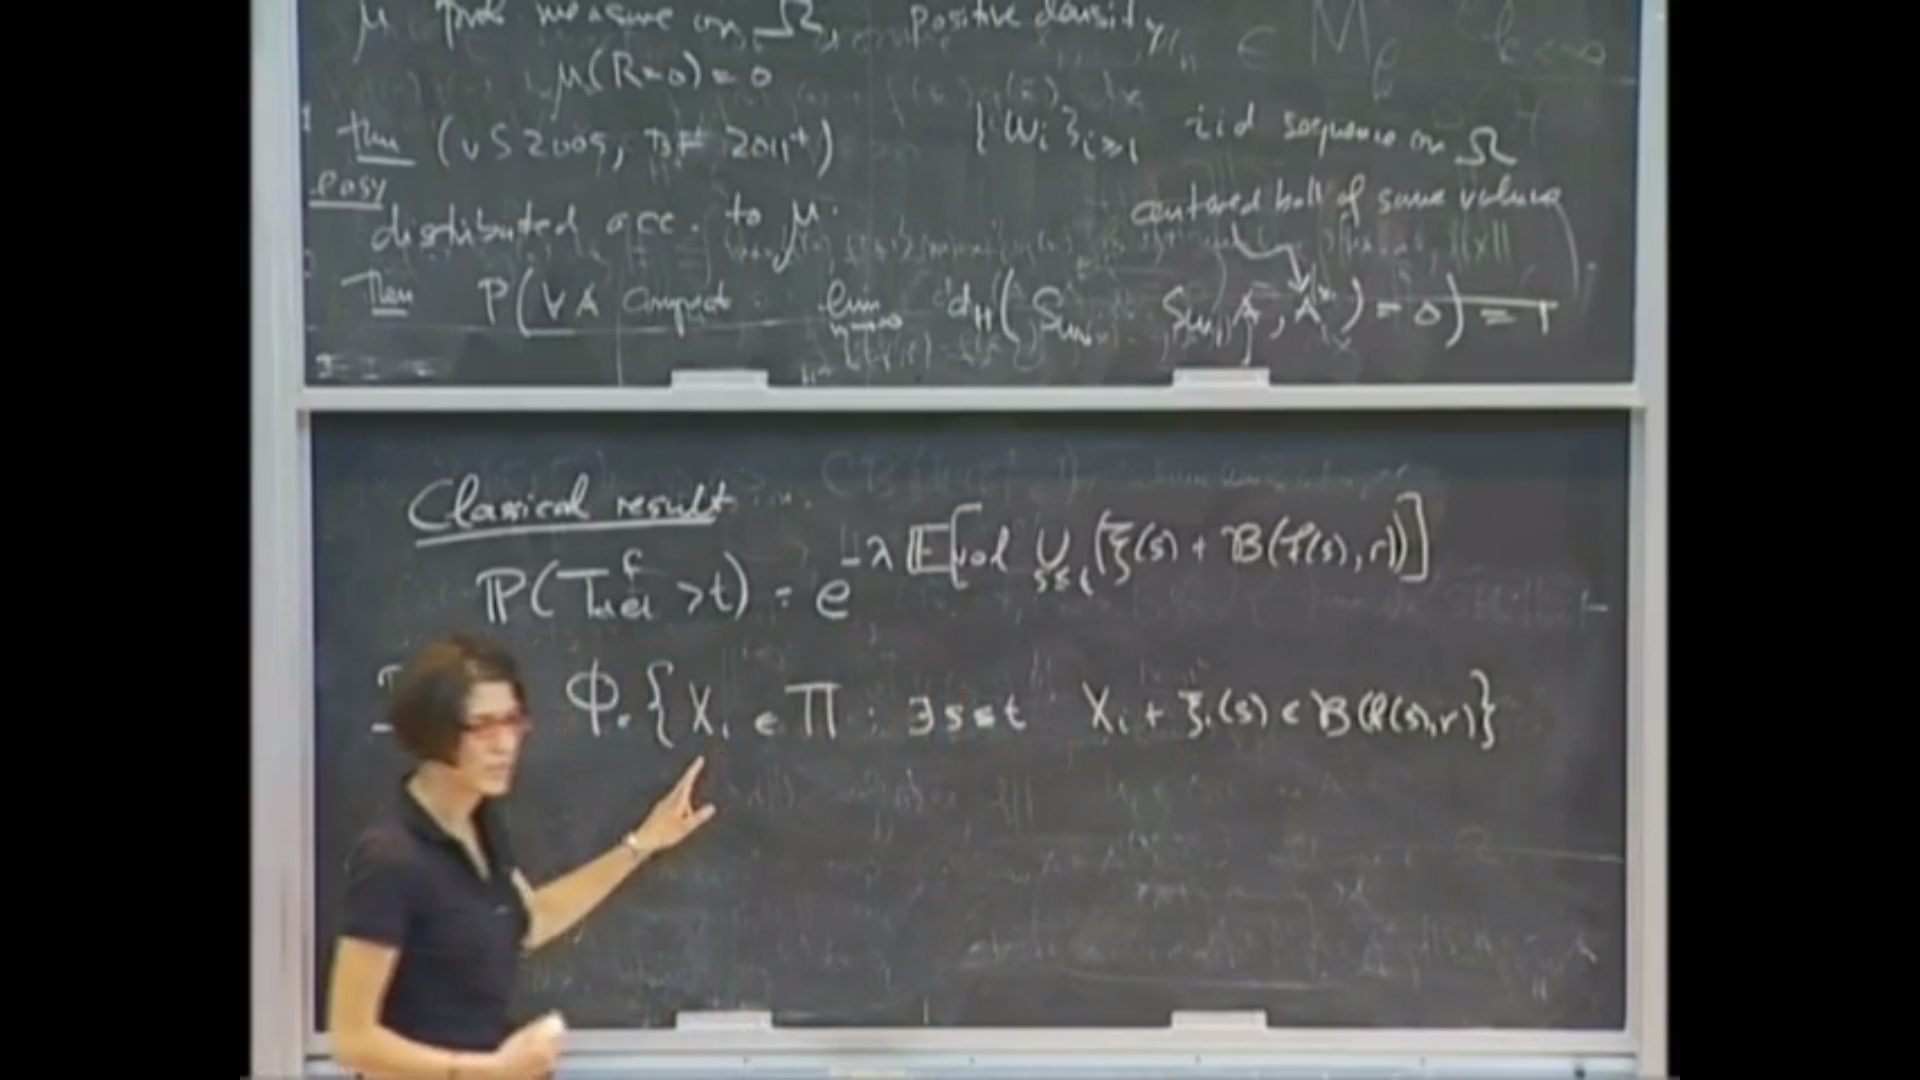 μ prob measure on Ω, positive density
μ(R=0) = 0
Thm (vS 2009, BF 2011+) {W_i}_{i≥1} iid sequence on Ω
easy
distributed acc. to μ. centered ball of same volume
Then P(∀A compact lim_{n→∞} d_H(S_{w_n} ... S_{w_1} A, A*) = 0) = 1
Classical result
ℙ(T_{det}^f > t) = e^{-λ 𝔼[vol ∪_{s≤t} (ξ(s) + B(f(s), r))]}
Φ = {X_i ∈ Π : ∃ s ≤ t X_i + ξ_i(s) ∈ B(f(s), r)}